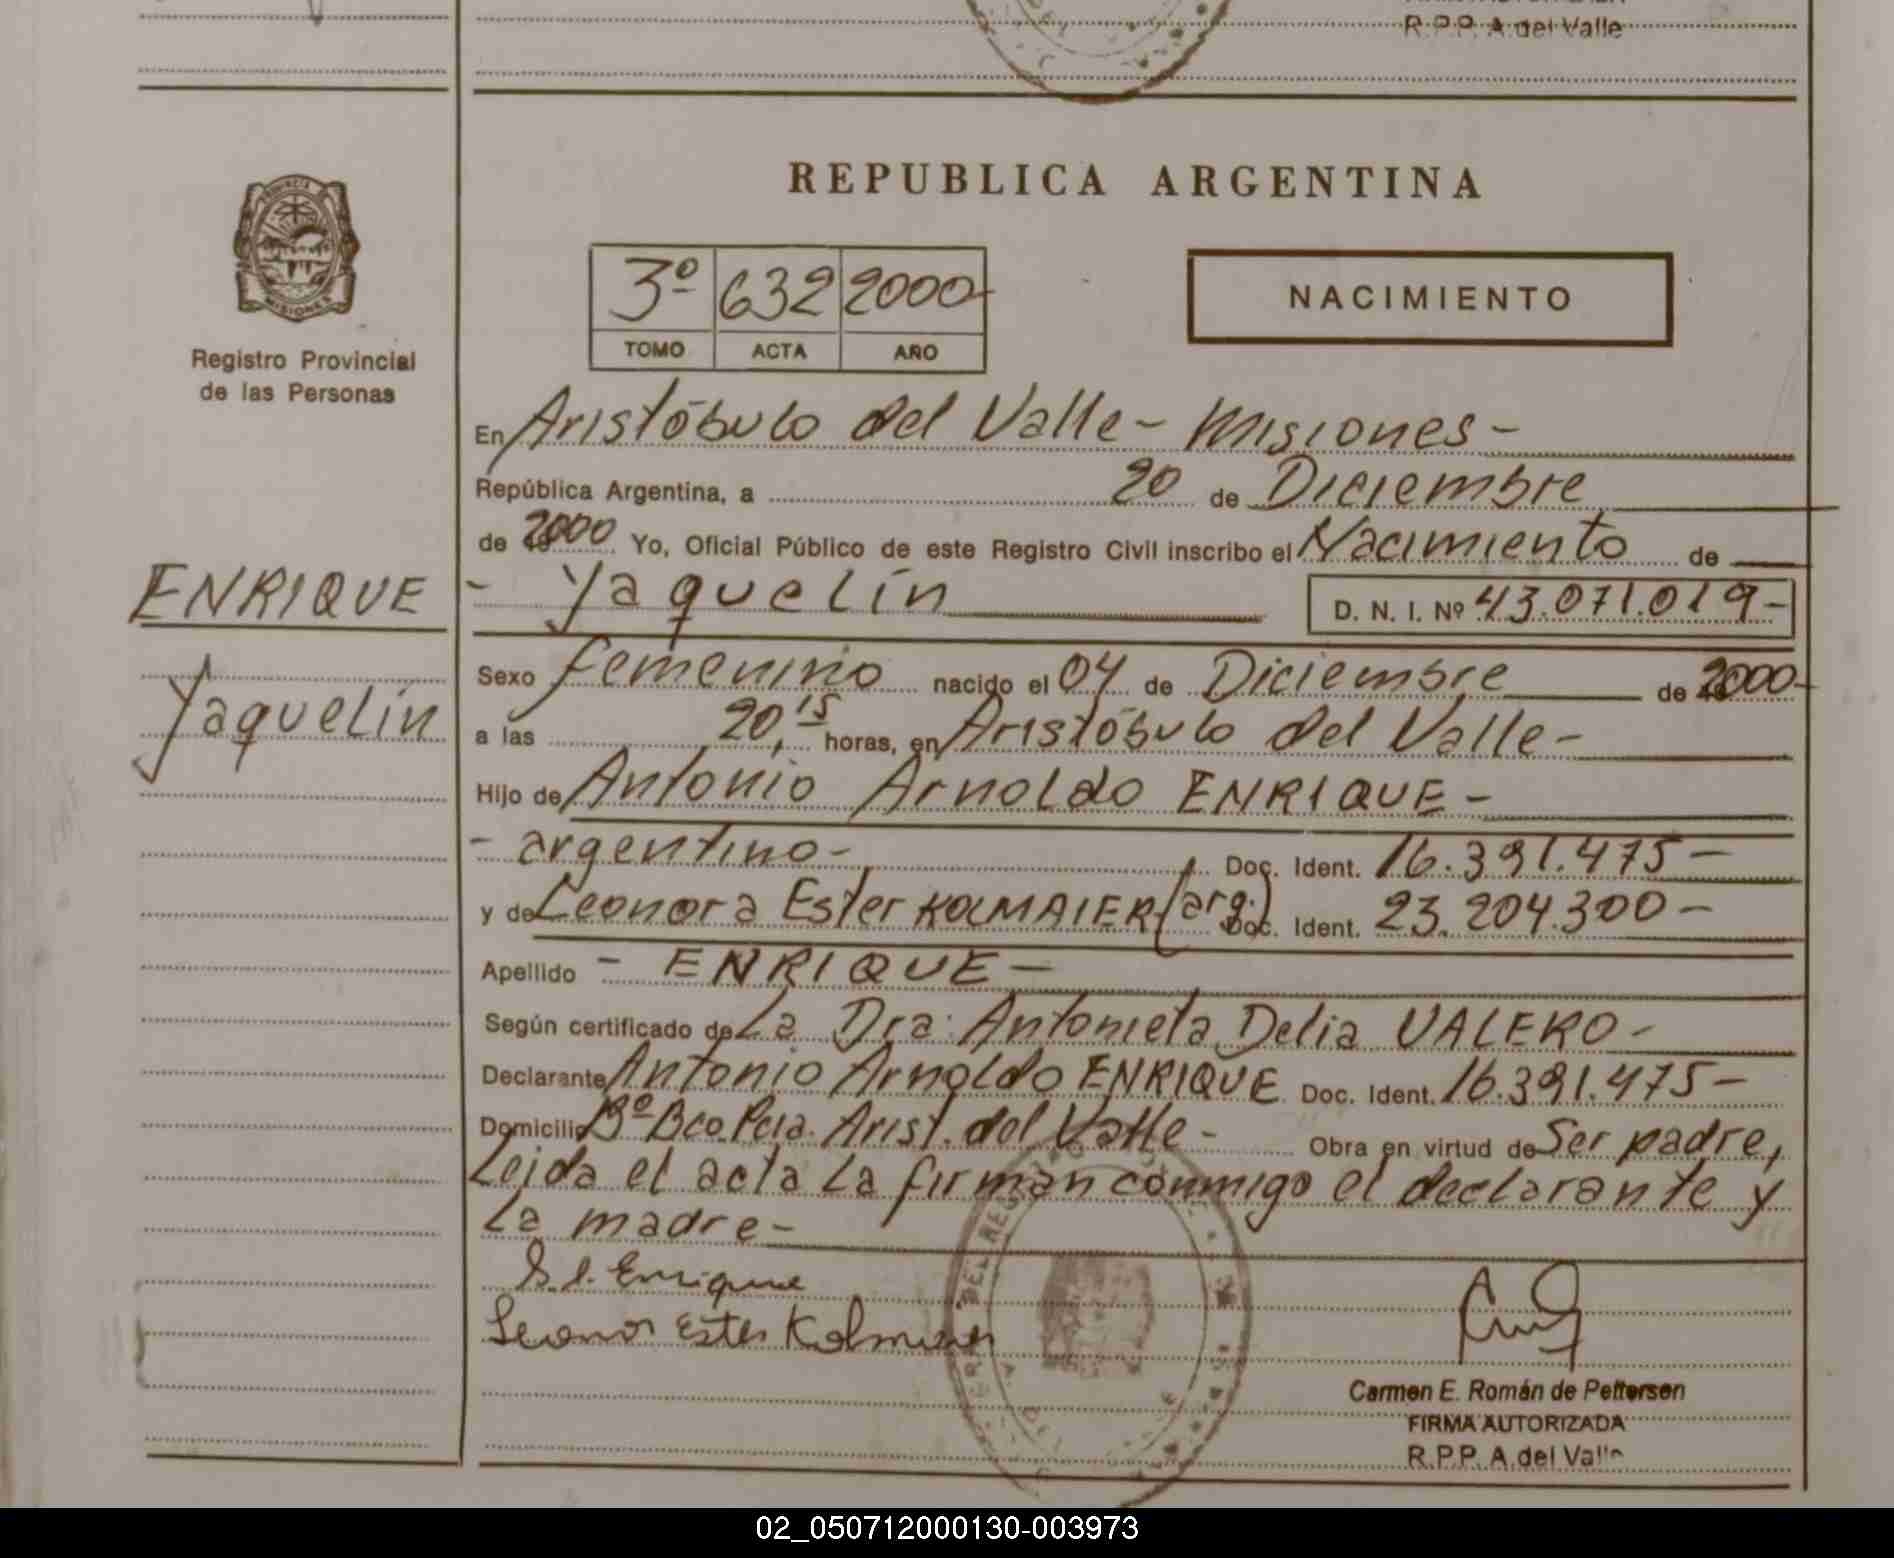 R.P.P. A del Valle
REPUBLICA ARGENTINA
PROVINCIA DE
MISIONES
Registro Provincial
de las Personas
3º 632 2000
TOMO ACTA AÑO
NACIMIENTO
En Aristóbulo del Valle - Misiones -
República Argentina, a 20 de Diciembre
de 2000 Yo, Oficial Público de este Registro Civil inscribo el Nacimiento de
ENRIQUE
- Yaquelín
D. N. I. Nº 43.071.019-
Yaquelín
Sexo femenino nacido el 04 de Diciembre de 2000
a las 20,15 horas, en Aristóbulo del Valle -
Hijo de Antonio Arnoldo ENRIQUE -
- argentino - Doc. Ident. 16.391.475 -
y de Leonora Ester KOLMAIER (arg.) Doc. Ident. 23.204.300 -
Apellido - ENRIQUE -
Según certificado de La Dra. Antonieta Delia VALERO -
Declarante Antonio Arnoldo ENRIQUE Doc. Ident. 16.391.475 -
Domicilio Bº Bco. Pcia. Arist. del Valle - Obra en virtud de Ser padre,
Leida el acta La firman conmigo el declarante y
La madre -
Enrique
Leonor Ester Kolmaier
Carmen E. Román de Pettersen
FIRMA AUTORIZADA
R.P.P. A. del Valle
02_050712000130-003973